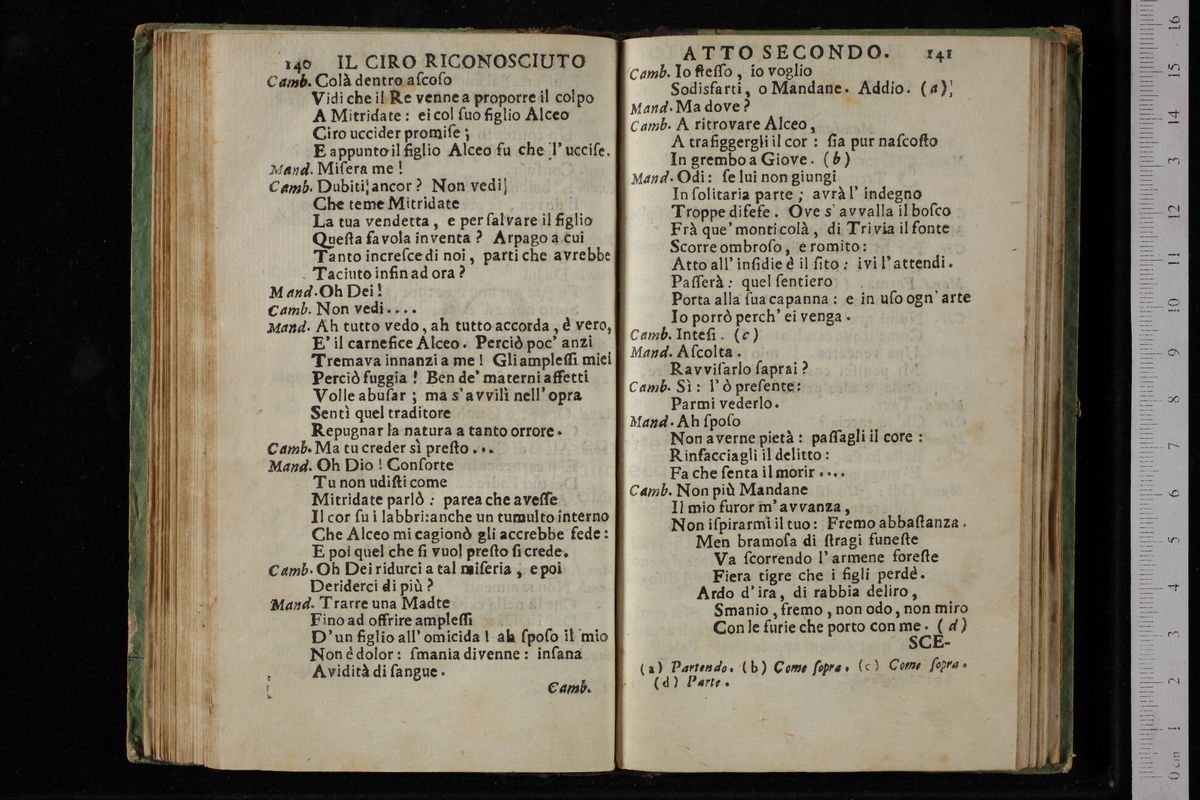 140 IL CIRO RICONOSCIUTO
Camb. Colà dentro aſcoſo
Vidi che il Re venne a proporre il colpo
A Mitridate : ei col ſuo figlio Alceo
Ciro uccider promiſe ;
E appunto il figlio Alceo fu che l' ucciſe.
Mand. Miſera me !
Camb. Dubiti ancor ? Non vedi
Che teme Mitridate
La tua vendetta , e per ſalvare il figlio
Queſta favola inventa ? Arpago a cui
Tanto increſce di noi , parti che avrebbe
Taciuto infin ad ora ?
Mand. Oh Dei !
Camb. Non vedi....
Mand. Ah tutto vedo , ah tutto accorda , è vero,
E' il carnefice Alceo . Perciò poc' anzi
Tremava innanzi a me ! Gli ampleſſi miei
Perciò fuggia ! Ben de' materni affetti
Volle abuſar ; ma s' avvilì nell' opra
Sentì quel traditore
Repugnar la natura a tanto orrore .
Camb. Ma tu creder sì preſto ...
Mand. Oh Dio ! Conſorte
Tu non udiſti come
Mitridate parlò : parea che aveſſe
Il cor ſu i labbri: anche un tumulto interno
Che Alceo mi cagionò gli accrebbe fede :
E poi quel che ſi vuol preſto ſi crede.
Camb. Oh Dei ridurci a tal miſeria , e poi
Deriderci di più ?
Mand. Trarre una Madte
Fino ad offrire ampleſſi
D'un figlio all' omicida ! ah ſpoſo il mio
Non è dolor : ſmania divenne : inſana
Avidità di ſangue .
Camb.
ATTO SECONDO. 141
Camb. Io ſteſſo , io voglio
Sodisfarti , o Mandane . Addio . (a)
Mand. Ma dove ?
Camb. A ritrovare Alceo ,
A trafiggergli il cor : ſia pur naſcoſto
In grembo a Giove . (b)
Mand. Odi : ſe lui non giungi
In ſolitaria parte ; avrà l' indegno
Troppe difeſe . Ove s' avvalla il boſco
Frà que' monti colà , di Trivia il fonte
Scorre ombroſo , e romito :
Atto all' inſidie è il ſito : ivi l'attendi .
Paſſerà : quel ſentiero
Porta alla ſua capanna : e in uſo ogn' arte
Io porrò perch' ei venga .
Camb. Inteſi . (c)
Mand. Aſcolta .
Ravviſarlo ſaprai ?
Camb. Sì : l' ò preſente :
Parmi vederlo .
Mand. Ah ſpoſo
Non averne pietà : paſſagli il core :
Rinfacciagli il delitto :
Fa che ſenta il morir ....
Camb. Non più Mandane
Il mio furor m' avvanza ,
Non iſpirarmi il tuo : Fremo abbaſtanza .
Men bramoſa di ſtragi funeſte
Va ſcorrendo l' armene foreſte
Fiera tigre che i figli perdè .
Ardo d' ira , di rabbia deliro ,
Smanio , fremo , non odo , non miro
Con le furie che porto con me . (d)
SCE-
(a) Partendo. (b) Come ſopra. (c) Come ſopra.
(d) Parte.
0cm 1 2 3 4 5 6 7 8 9 10 11 12 13 14 15 16